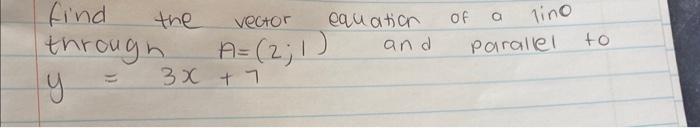 find the vector equation of a line
through A=(2;1) and parallel to
y = 3x + 7